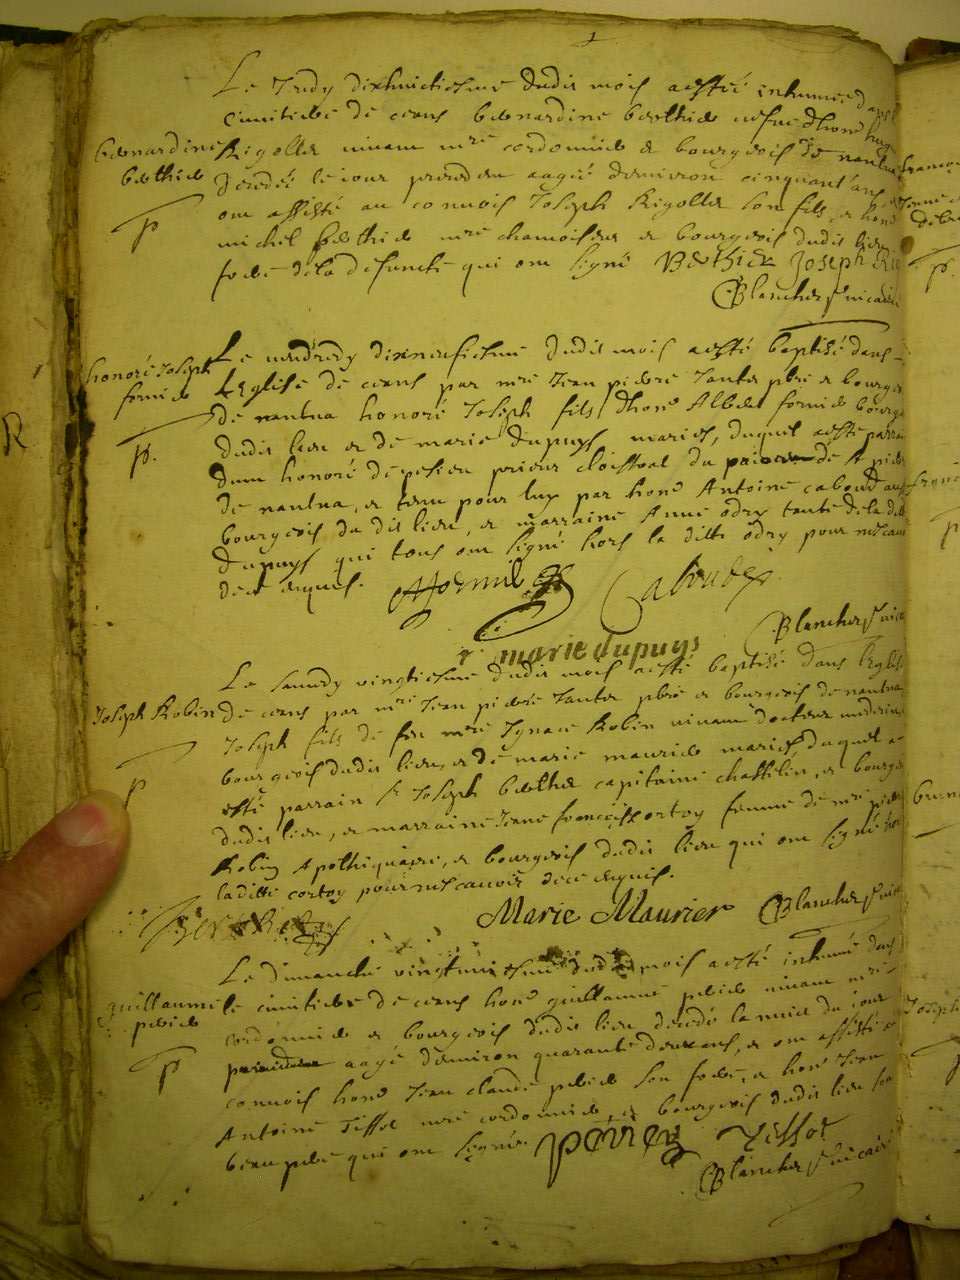 Le Jeudy dixhuictiesme dudit mois a esté inhumée dans le
cimitiere de ceans bernardine berthier vefue d'hone hug
bernardine Rigollet vivant mre cordonnier et bourgeois de nantua
berthier decedée le jour precedent aagée d'environ cinquant'ans
p ont assisté au convois Joseph Rigollet son fils, et hone
michel berthier mre chamoiseur et bourgeois dudit lieu
frere de la defuncte qui ont signé Berthier Joseph
Blanchet vicaire
Le vendredy dixneufiesme dudit mois a esté baptisé dans
honoré Joseph l'Eglise de ceans par mre Jean pierre Tantet pbre et bourgeois
fornier de nantua honoré Joseph fils d'hone Albert fornier bourg
p. dudit lieu et de marie dupuys mariés, duquel a esté parrain
dom honoré de pesieu prieur cloistral du prioré de St pierre
de nantua, et tenu pour luy par hone Antoine caboud
bourgeois du dit lieu, et marraine Anne odry tante de la ditte
dupuys qui tous ont signé hors la ditte odry pour ne scavoir
de ce enquis.
Caboudz
Blanchet vicaire
marie dupuys
Le samedy vingtiesme dudit mois a esté baptisé dans l'Eglise
Joseph Robin de ceans par mre Jean pierre Tantet pbre et bourgeois de nantua
Joseph fils de feu mre Ignace Robin vivant docteur medecin
p bourgeois dudit lieu, et de marie maurier mariés duquel a
esté parrain sr Joseph berthet capitaine chastelin, et bourgeois
dudit lieu, et marraine Jeane françoise cortoy femme de mre pierre
Robin Apothiquaire, et bourgeois dudit lieu qui ont signé hors
laditte cortoy pour ne scavoir de ce enquis.
Berthet Marie Maurier Blanchet vicaire
Le dimanche vingtuniesme dudit mois a esté inhumé dans
guillaume le cimitiere de ceans hone guillaume perier vivant mre
perier cordonnier et bourgeois dudit lieu decedé la nuict du jour
p precedent aagé d'environ quarante deux ans, et ont assisté au
convois hone Jean claude perier son frere, et hone Jean
Antoine Tissot mre cordonnier, et bourgeois dudit lieu son
beau pere qui ont signés. perier Tissot
Blanchet vicaire